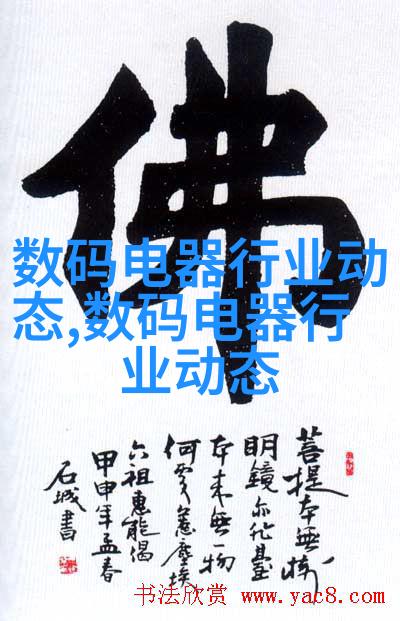 佛
数码电器行业动
态,数码电器行
业动态
菩提本無樹
明鏡亦非臺
本来無一物
何处惹塵埃
六祖惠能偈
甲申年孟春
石城書
书法欣赏
www.yac8.com